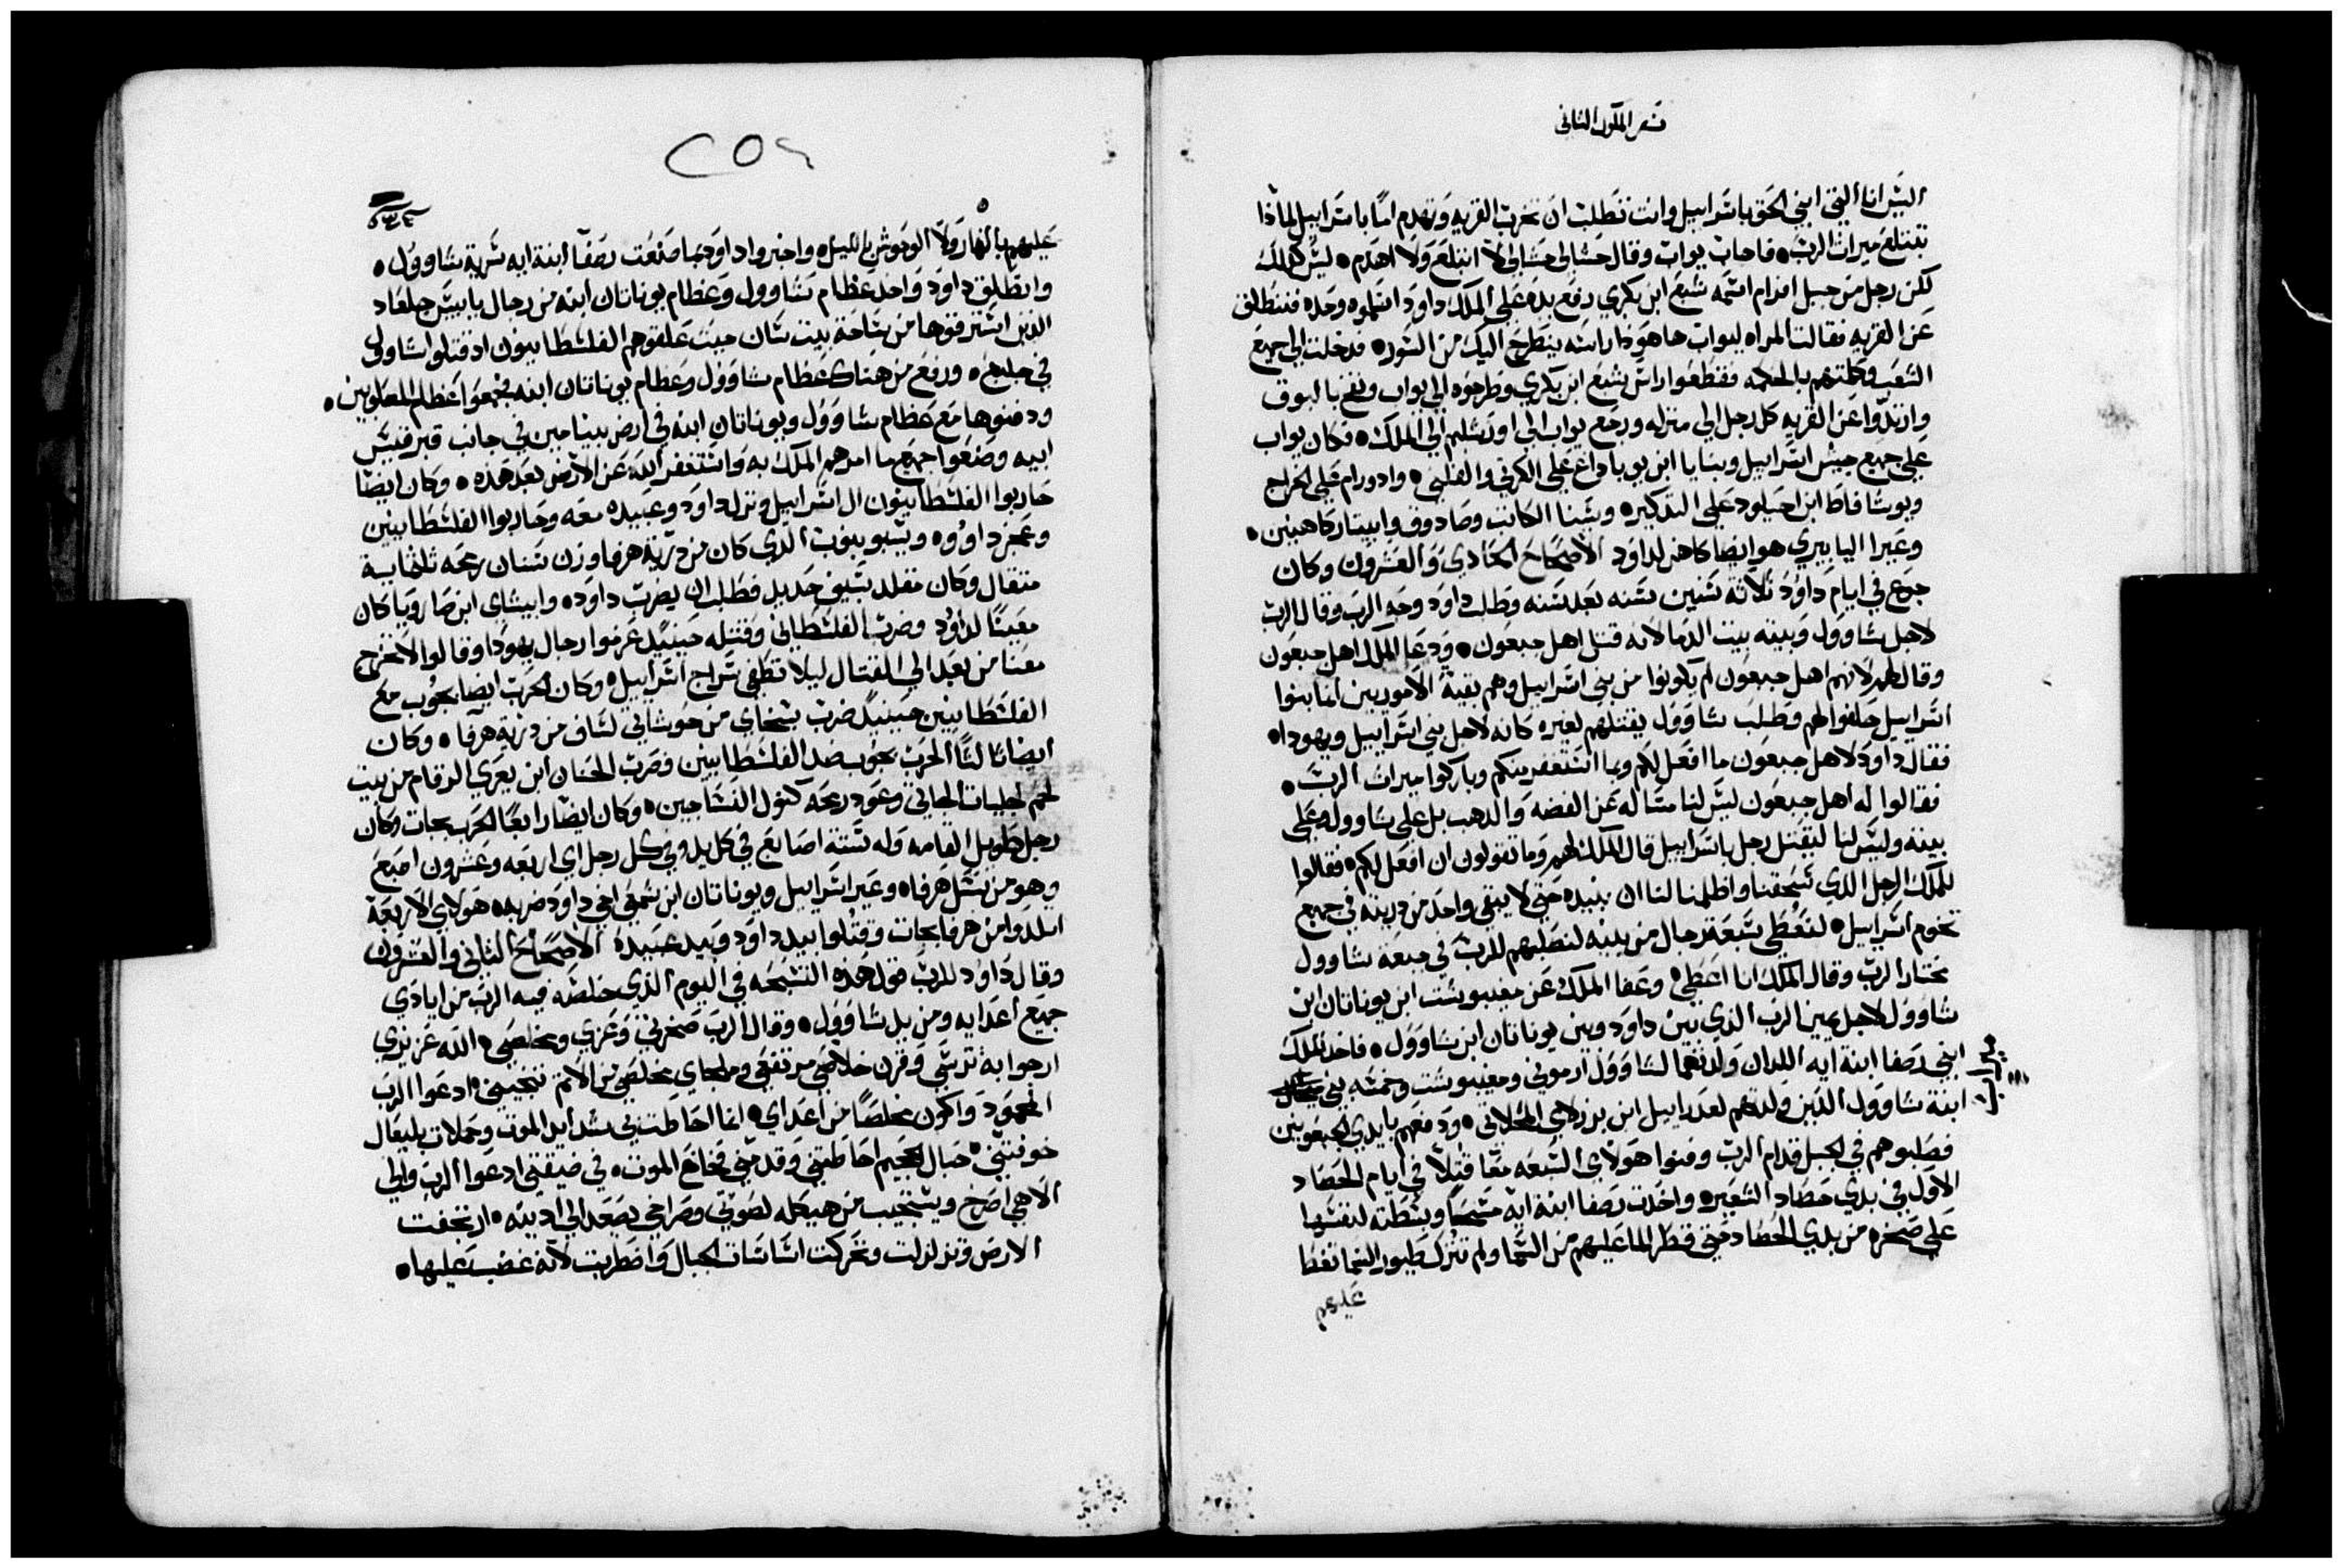 سفر الملوك الثاني
اليس انا التي ابني الحق باسراييل وانت تطلب ان تخرب القريه وتهدم اما باسراييل لماذا
تبتلع ميراث الرب فاجاب يواب وقال حشا لي حشا لي لا ابتلع ولا اهدم ليس كذلك
لكن رجل من جبل افرام اسمه شبع ابن بكري رفع يده على الملك داود اسلموه وحده فننطلق
عن القريه فقالت المراه ليواب ها هوذا راسه ينطرح اليك من السور فدخلت الى جميع
الشعب وكلمتهم بالحكمه فقطعوا راس شبع ابن بكري وطرحوه الى يواب ونفخ بالبوق
وارتدوا عن القريه كل رجل الى منزله ورجع يواب الى اورشليم الى الملك فكان يواب
على جميع جيش اسراييل وبنايا ابن يوياداع على الكرتي والفلتي وادورام على الخراج
ويوشافاط ابن احيلود على التدكير وشينا الكاتب وصادوق وابيتار كاهنين
وعيرا اليابيري هو ايضا كاهن لداود الاصحاح الحادي والعشرون وكان
جوع في ايام داوود ثلاثة سنين سنه بعد سنه وطلب داود وجه الرب وقال الرب
لاجل شاوول وبيته بيت الدما لانه قتل اهل جبعون ودعا الملك اهل جبعون
وقال لهم لانهم اهل جبعون لم يكونوا من بني اسراييل وهم بقية الاموريين انما بنوا
اسراييل حلفوا لهم وطلب شاوول يقتلهم لغيره كانه لاجل بني اسراييل ويهودا
فقال داود لاهل جبعون ما افعل لكم وبما استغفر بينكم وباركوا ميراث الرب
فقالوا له اهل جبعون ليس لنا مساله عن الفضه والدهب بل على شاوول وعلى
بيته وليس لنا ليقتل رجل باسراييل قال الملك لهم وما تقولون ان افعل لكم فقالوا
للملك الرجل الذي سحقنا واظلمنا لنا ان نبيده حتى لا يبقى واحد من دريته في جميع
تخوم اسراييل لتعطي سبعة رجال من بنيه لنصلبهم للرب في جبعة شاوول
مختار الرب وقال الملك انا اعطي وعفا الملك عن مفيبوشت ابن يوناتان ابن
شاوول لاجل يمين الرب الذي بين داود وبين يوناتان ابن شاوول فاخد الملك
ابني رصفا ابنة ايه اللدان ولدتهما لشاوول ارموني ومفيبوشت وخمسه بني ميكال
ابنة شاوول الذين ولدتهم لعدراييل ابن برزلاي المحلاتي ودفعهم بايدي الجبعونيين
فصلبوهم في الجبل قدام الرب وفنوا هولاي السبعه معا قتلا في ايام الحصاد
الاول في بدي حصاد الشعير واخدت رصفا ابنة ايه مسحا وبسطته لنفسها
على صخره من بدي الحصاد حتى قطر الما عليهم من السما ولم تترك طيور السما تغطا
عليهم
٢٥٩
عليهم بالنهار ولا الوحوش بالليل واخبروا داود بما صنعت رصفا ابنة ايه سرية شاوول
وانطلق داود واخد عظام شاوول وعظام يوناتان ابنه من رجال يابيس جلعاد
الذين استرقوها من ساحة بيت سان حيث علقوهم الفلسطانيون اد قتلوا شاوول
في جلبع ورفع من هناك عظام شاوول وعظام يوناتان ابنه فجمعوا عظام المصلوبين
ودفنوها مع عظام شاوول ويوناتان ابنه في ارض بنيامين في جانب قبر قيس
ابيه وصنعوا جميع ما امرهم الملك به واستغفر الله عن الارض بعد هذه وكان ايضا
حاربوا الفلسطانيون ال اسراييل ونزل داود وعبيده معه وحاربوا الفلسطانيين
وعجز داوود ويسبوبنوب الذي كان من درية هرفا وزن سنان رمحه ثلثماية
متقال وكان مقلد بسيف جديد فطلب ان يضرب داود وابيشاي ابن صارويا كان
معينا لداوود وضرب الفلسطاني وقتله حينيد عزموا رجال يهودا وقالوا لا تخرج
معنا من بعد الى القتال ليلا تطفي سراج اسراييل وكان الحرب ايضا بجوب مع
الفلسطانيين حينيد ضرب سبخاي من حوشاتي لساف من درية هرفا وكان
ايضا تالتا الحرب بجوب ضد الفلسطانيين وضرب الحنان ابن يعري الرقام من بيت
لحم لجليات الجاتي وعود رمحه كنول النساجين وكان ايضا رابعا الحرب بجات وكان
رجل طويل القامه وله ستة اصابع في كل يد وفي كل رجل اي اربعه وعشرون اصبع
وهو من نسل هرفا وعير اسراييل ويوناتان ابن شمعي اخي داود ضربه هولاي الاربعة
اتلدوا من هرفا بجات وقتلوا بيد داود وبيد عبيده الاصحاح الثاني والعشرون
وقال داود للرب قول هذه التسبحه في اليوم الذي خلصه فيه الرب من ايادي
جميع اعدايه ومن يد شاوول وقال الرب صخرتي وعزي ومخلصي الله عزيزي
ارجوا به ترسي وقرن خلاصي مرتفعي وملجاي مخلصي من الاتم تنجيني ادعوا الرب
المحمود واكون مخلصا من اعداي انما احاطت بي شدايد الموت وحملات بليعال
خوفتني حبال الجحيم احاطتني وقدمتني فخاخ الموت في ضيقتي ادعوا الرب والى
الاهي اصرخ ويستجيب من هيكله لصوتي وصراخي يصعد الى اذنيه ارتجفت
الارض وتزلزلت وتحركت اساسات الجبال واضطربت لانه غضب عليها